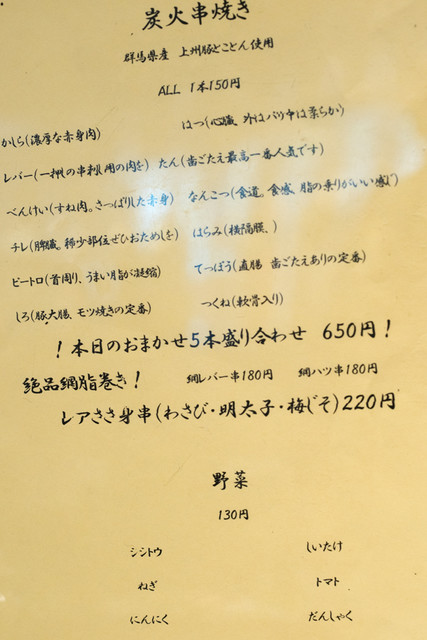 炭火串焼き
群馬県産 上州豚とことん使用
ALL 1本150円
かしら(濃厚な赤身肉) はつ(心臓、外はパリ中は柔らか)
レバー(一押しの串刺し用の肉を) たん(歯ごたえ最高一番人気です)
べんけい(すね肉。さっぱりした赤身) なんこつ(食道。食感、脂の乗りがいい感じ)
チレ(脾臓。稀少部位ぜひおためしを) はらみ(横隔膜、)
ピートロ(首周り、うまい脂が凝縮) てっぽう(直腸 歯ごたえありの定番)
しろ(豚大腸、モツ焼きの定番) つくね(軟骨入り)
!本日のおまかせ5本盛り合わせ 650円!
絶品網脂巻き! 網レバー串180円 網ハツ串180円
レアささ身串(わさび・明太子・梅じそ)220円
野菜
130円
シシトウ しいたけ
ねぎ トマト
にんにく だんしゃく